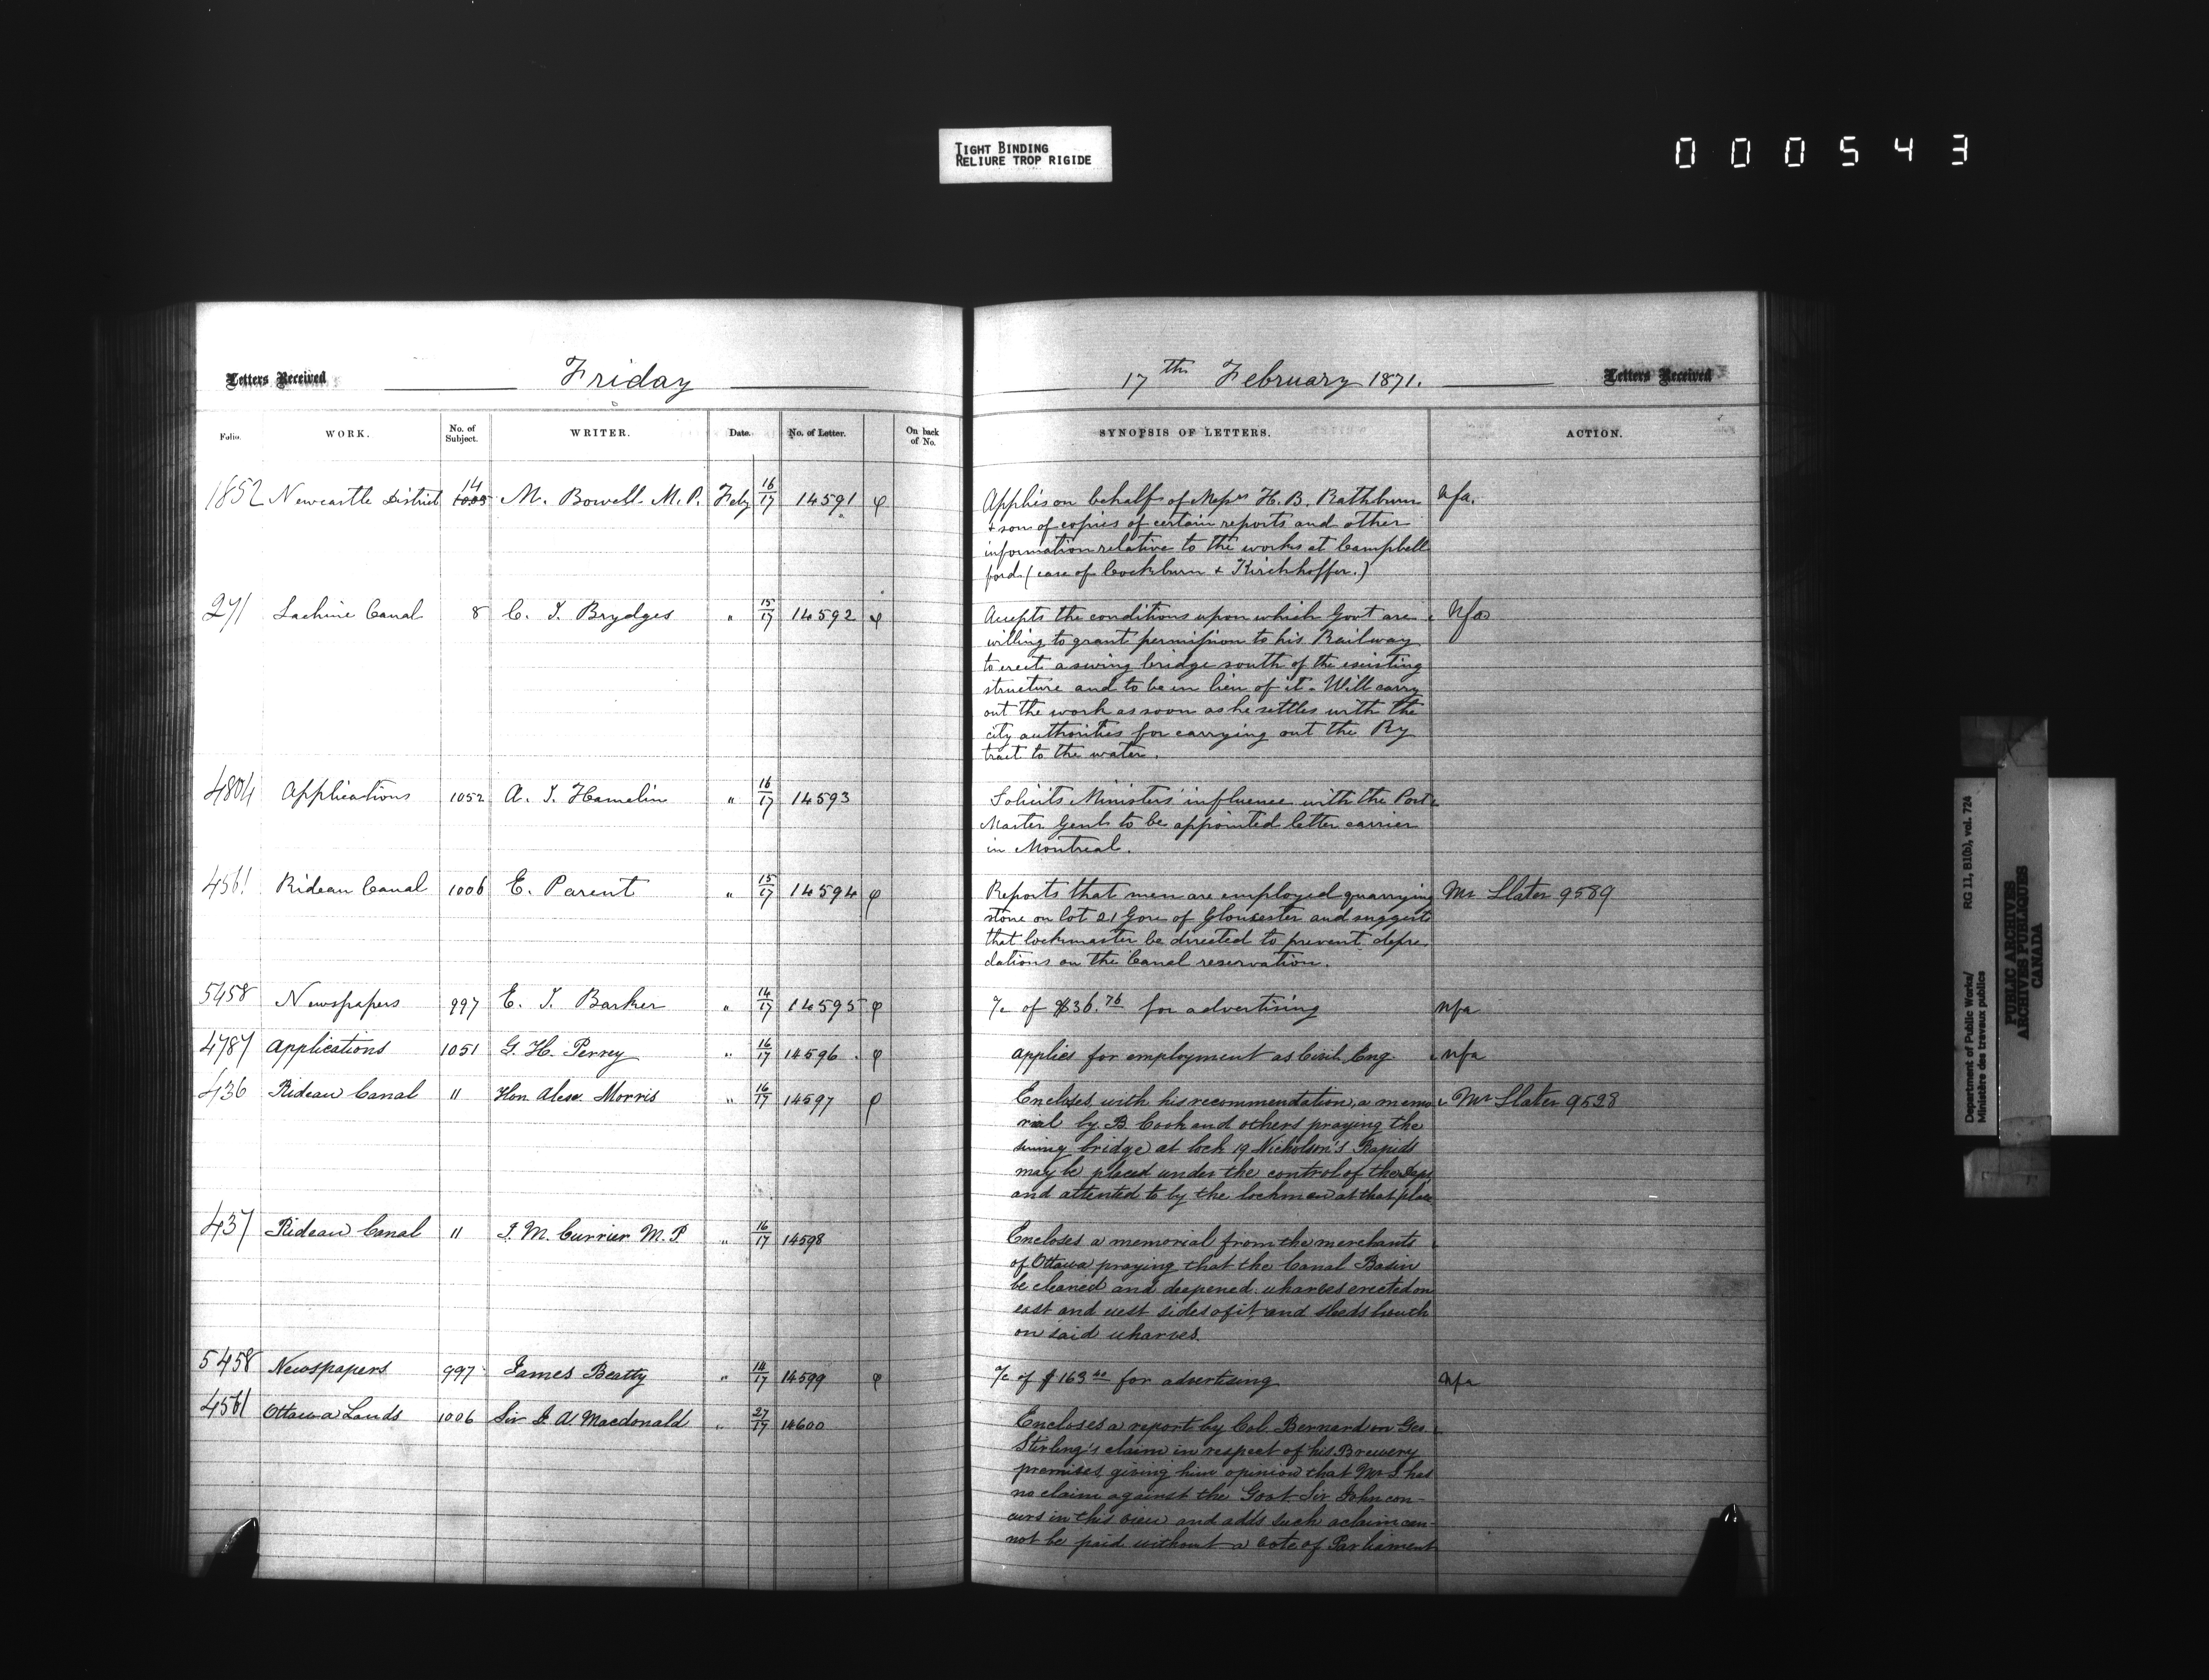 TIGHT BINDING
RELIURE TROP RIGIDE
000543
Letters Received
Friday
17th February 1871.
Letters Received
Folio. WORK. No. of Subject. WRITER. Date. No. of Letter. On back of No. SYNOPSIS OF LETTERS. ACTION.
1852 Newcastle District 14 1005 M. Bowell M.P. Feby 16/17 14591 φ Applies on behalf of Messrs H. B. Rathburn nfa.
& son of copies of certain reports and other
information relative to the works at Campbell
ford (case of Cockburn & Kirchhoffer.)
271 Lachine Canal 8 C. J. Brydges " 15/17 14592 φ Accepts the conditions upon which Govt are nfa
willing to grant permission to his Railway
to erect a swing bridge south of the existing
structure and to be in lieu of it. Will carry
out the work as soon as he settles with the
city authorities for carrying out the Ry
tract to the water.
4804 Applications 1052 A. J. Hamelin " 16/17 14593 Solicits Ministers' influence with the Post
Master Genl to be appointed letter carrier
in Montreal.
4561 Rideau Canal 1006 E. Parent " 15/17 14594 φ Reports that men are employed quarrying Mr Slater 9589
stone on lot 21 Gore of Gloucester and suggests
that lockmaster be directed to prevent depre
dations on the Canal reservation.
5458 Newspapers 997 E. J. Barker " 14/17 14595 φ a/c of $36.76 for advertising nfa
4787 Applications 1051 G. H. Perrey " 16/17 14596 φ applies for employment as Civil Eng. nfa
436 Rideau Canal 11 Hon. Alex. Morris " 16/17 14597 φ Encloses, with his recommendation, a memo Mr Slater 9528
rial by B. Cook and others praying the
swing bridge at lock 19 Nicholson's Rapids
may be placed under the control of the Dept
and attented to by the lockmen at that place
437 Rideau Canal 11 J. M. Currier M.P " 16/17 14598 Encloses a memorial from the merchants
of Ottawa praying that the Canal Basin
be cleaned and deepened. wharves erected on
east and west sides of it, and sheds
on said wharves.
5458 Newspapers 997 James Beatty " 14/17 14599 φ a/c of $163 40 for advertising nfa
4561 Ottawa Lands 1006 Sir J. A. Macdonald " 27/17 14600 Encloses a report by Col. Bernard on Geo.
Stirling's claim in respect of his Brewery
premises, giving him opinion that Mr S. has
no claim against the Govt. Sir John con-
curs in this view and adds such a claim can-
not be paid without a vote of Parliament
Department of Public Works/ RG 11, B1(b), vol. 724
Ministère des travaux publics
PUBLIC ARCHIVES
ARCHIVES PUBLIQUES
CANADA